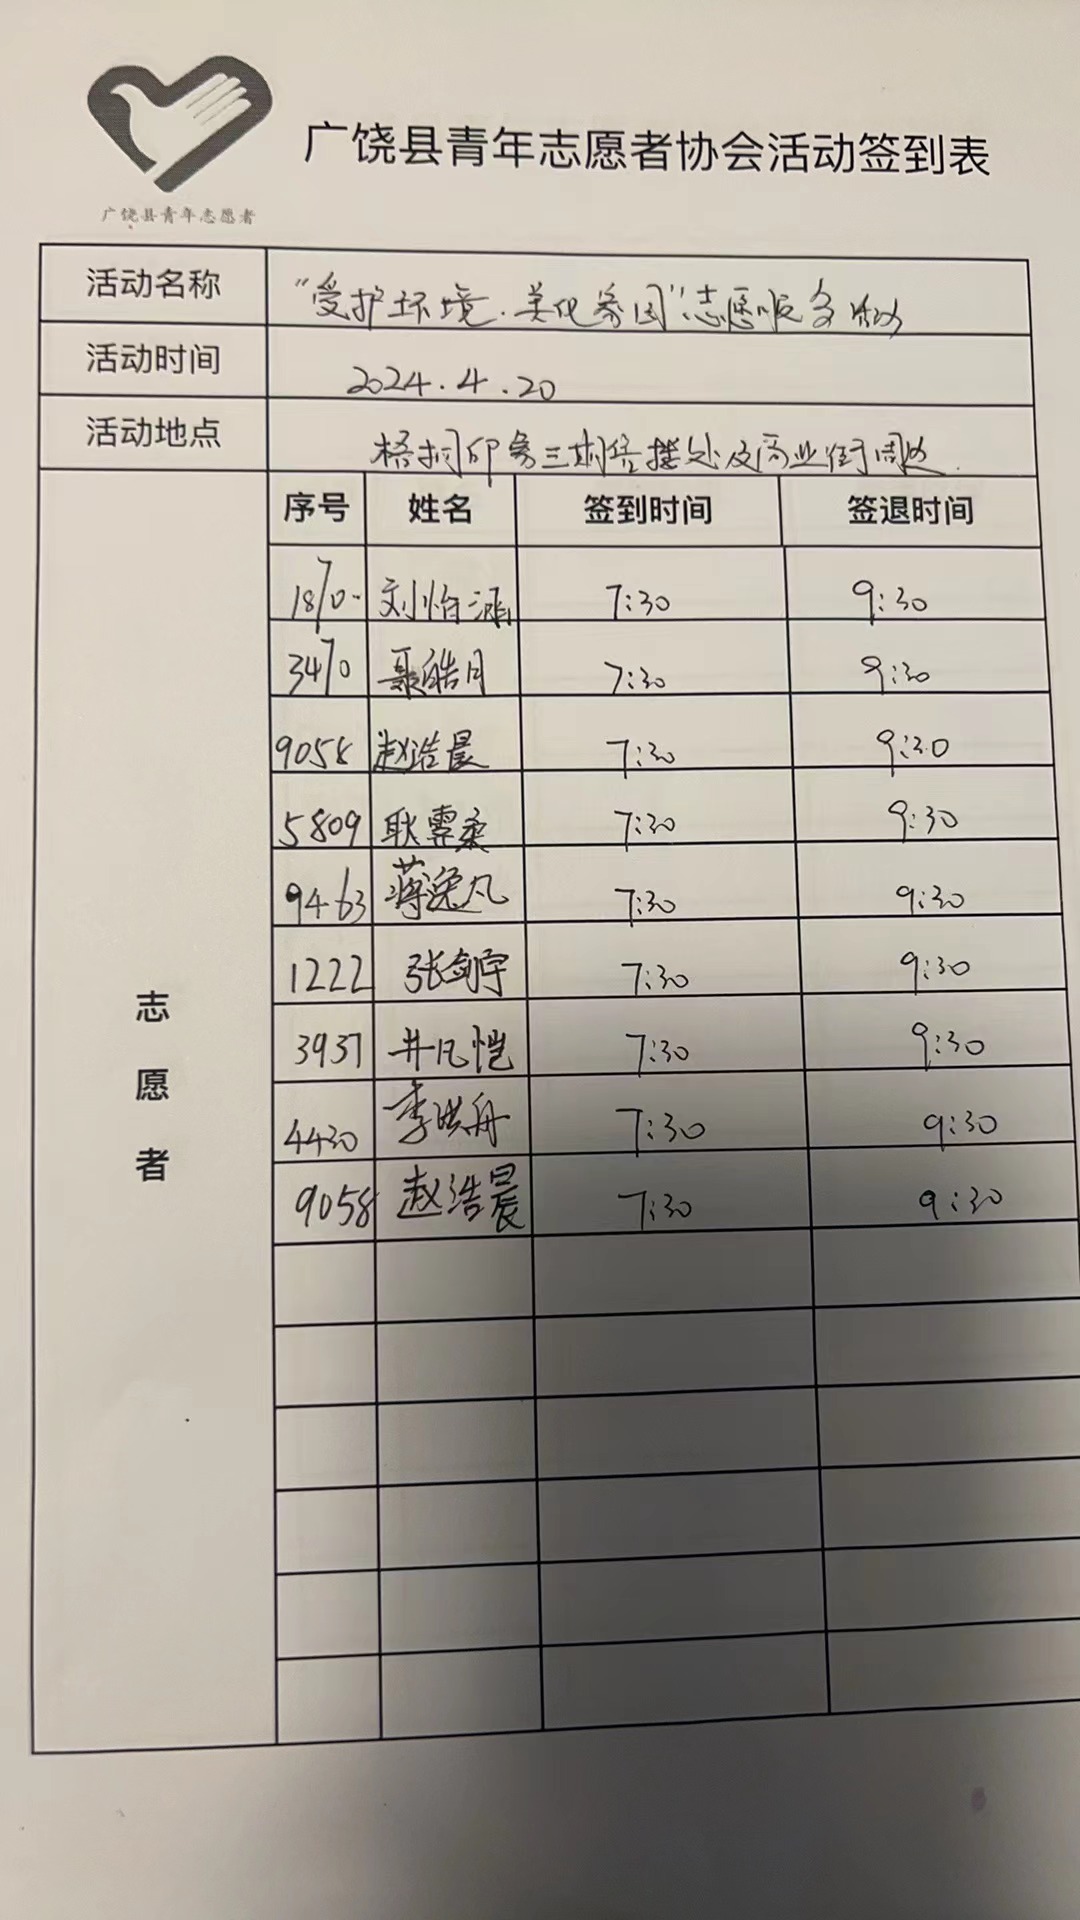 广饶县青年志愿者
广饶县青年志愿者协会活动签到表
活动名称 “爱护环境.美化家园”志愿服务活动
活动时间 2024.4.20
活动地点 梧桐印象三期 处及商业街周边
序号 姓名 签到时间 签退时间
志愿者
1870 刘怡涵 7:30 9:30
3470 聂皓月 7:30 9:30
9058 赵浩晨 7:30 9:30
5809 耿霂柔 7:30 9:30
9463 蒋逸凡 7:30 9:30
1222 张剑宇 7:30 9:30
3937 井凡恺 7:30 9:30
4430 李洪舟 7:30 9:30
9058 赵浩晨 7:30 9:30